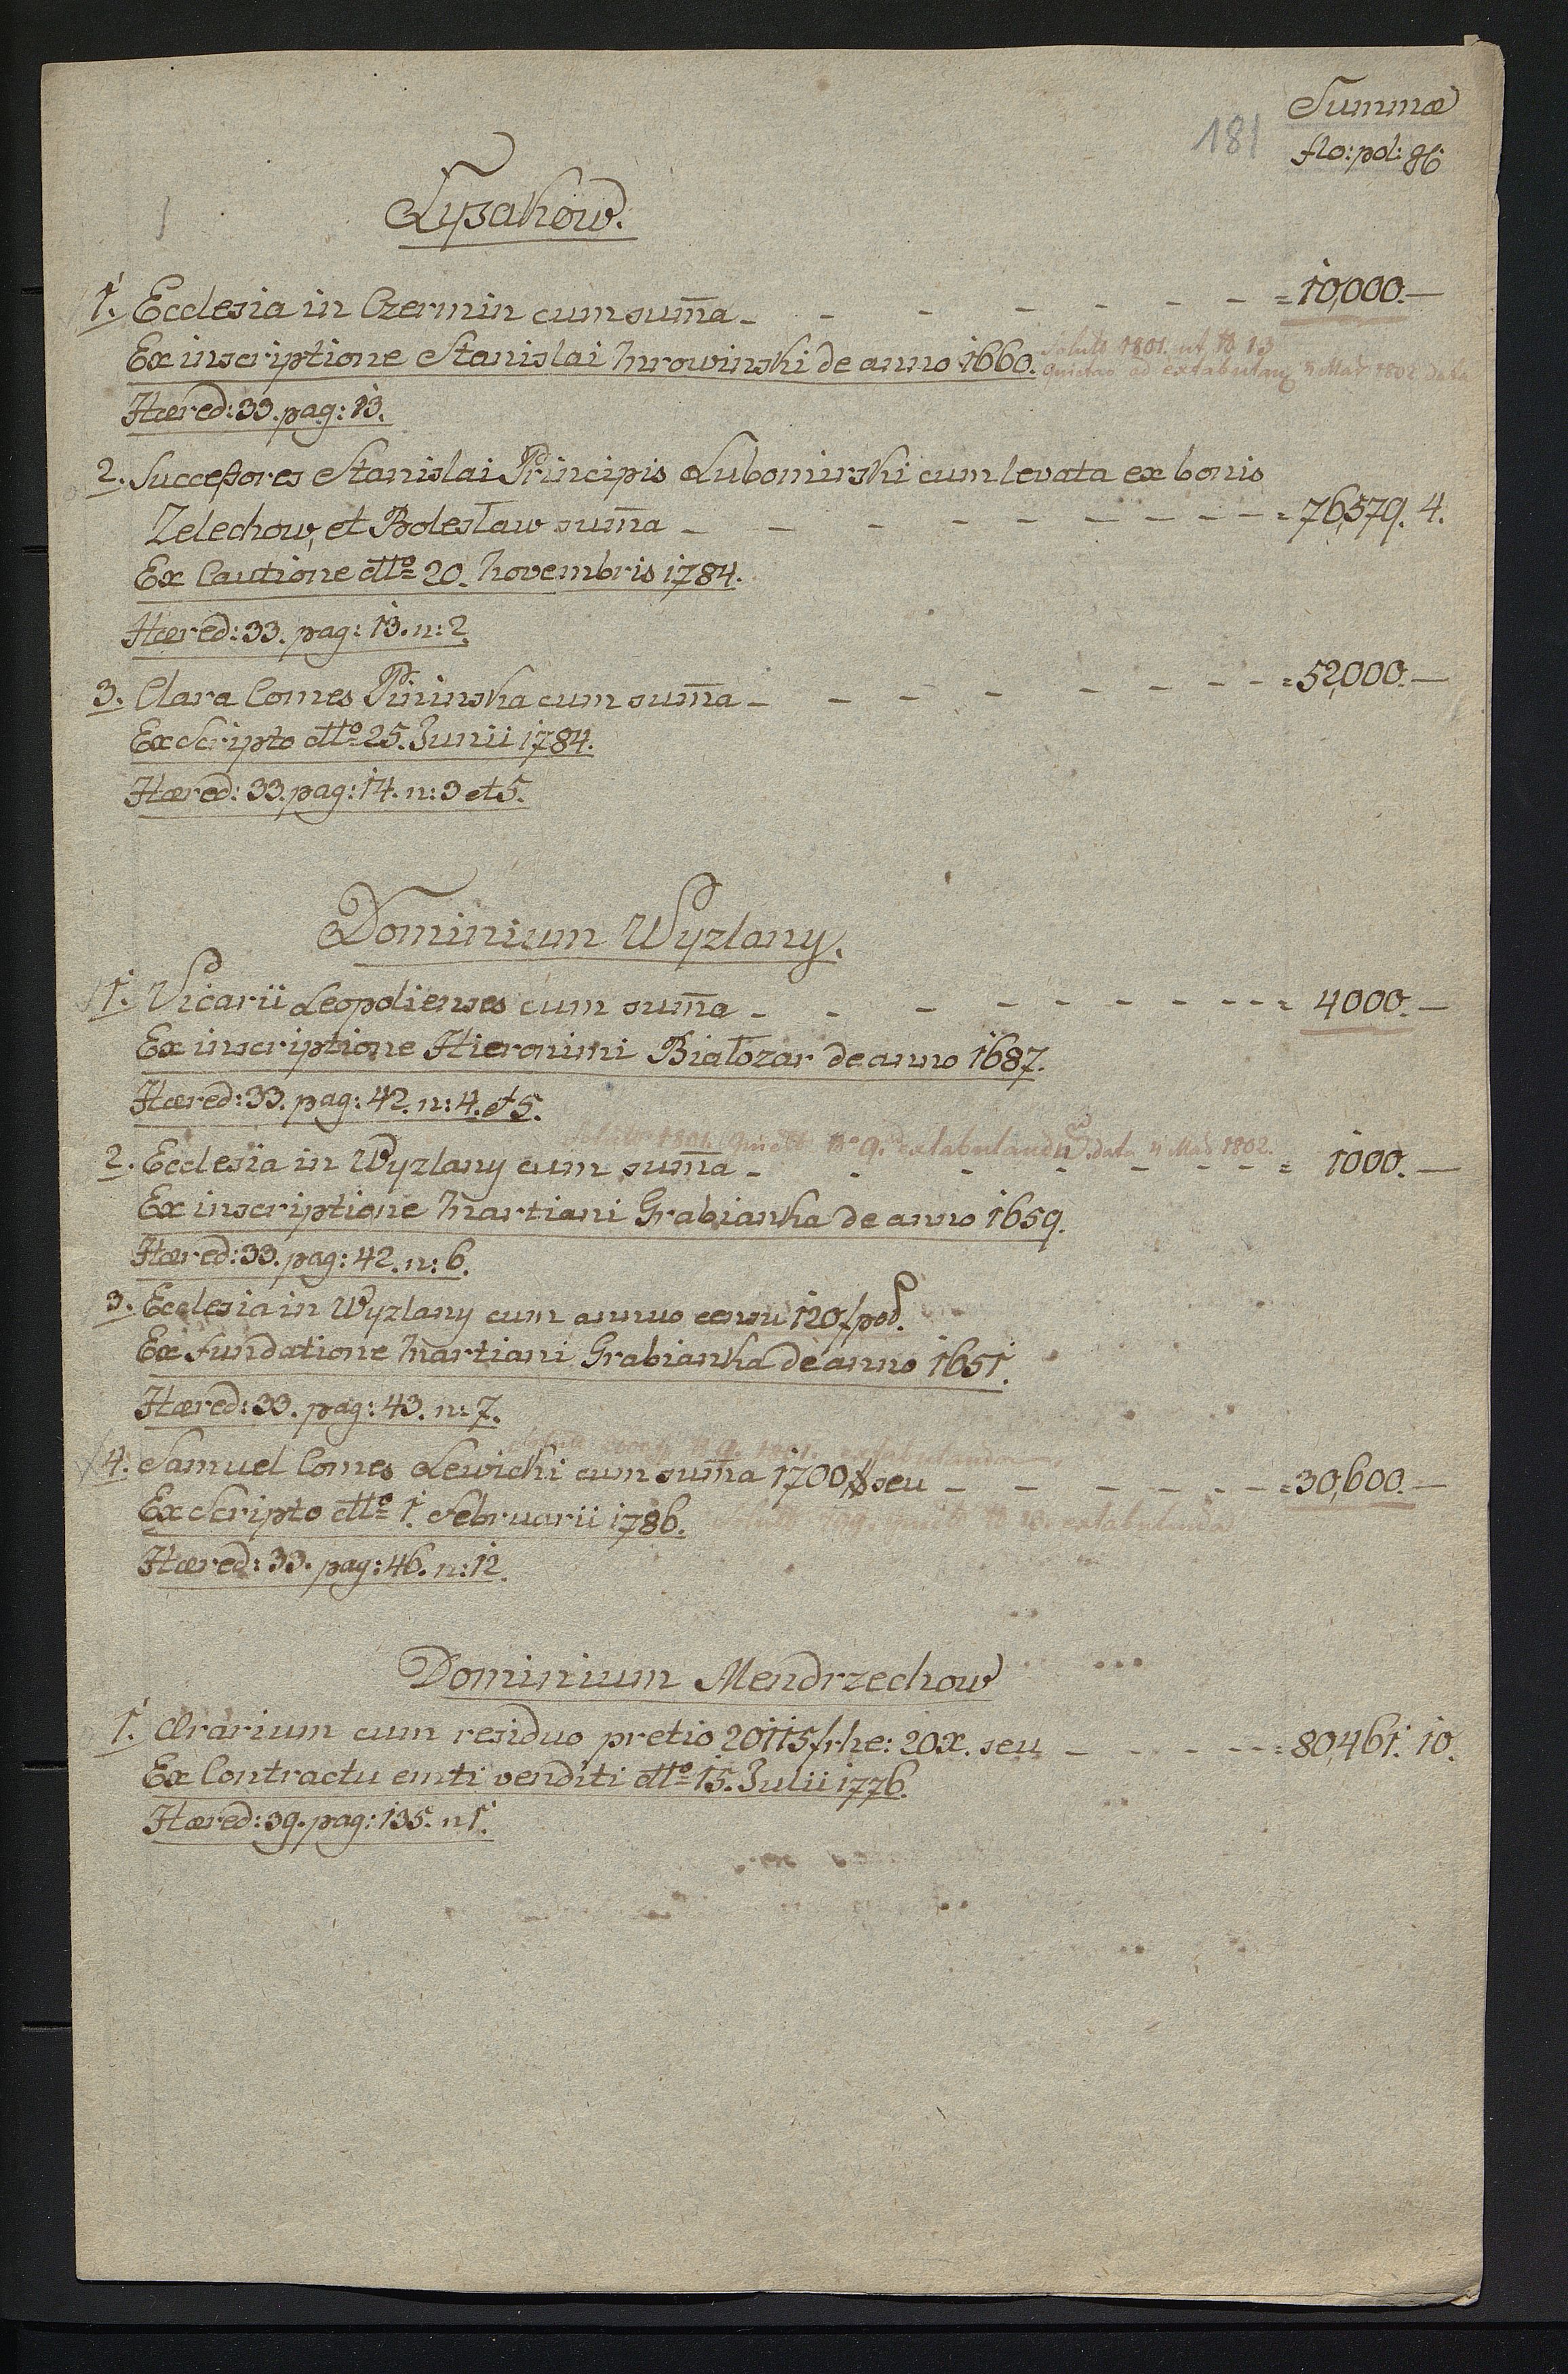 Summæ
181
flo: pol: gr:
Lysakow.
1. Ecclesia in Czermin cum suma - - - - - - = 10,000.—
Ex inscriptione Stanislai Mrowinski de anno 1660. 1801. ut
ad extabuland 1802 data
Hæred: 33. pag: 13.
2. Successores Stanislai Principis Lubomirski cum levata ex bonis
Zelechow, et Bolesław suma - - - - - - - = 76,579. 4.
Ex Cautione dtto 20. Novembris 1784.
Hæred: 33. pag: 13. n: 2.
3. Clara Comes Pininska cum suma - - - - - - = 52,000.—
Ex Scripto dtto 25. Junii 1784.
Hæred: 33. pag: 14. n: 3 et 5.
Dominium Wyzlany.
1. Vicarii Leopolienses cum suma - - - - - - = 4000.—
Ex inscriptione Hieronimi Białozar de anno 1687.
Hæred: 33. pag: 42. n: 4. et 5.
1801. extabulanda data 1802.
2. Ecclesia in Wyzlany cum suma - - - - - - = 1000.—
Ex inscriptione Martiani Grabianka de anno 1659.
Hæred: 33. pag: 42. n: 6.
3. Ecclesia in Wyzlany cum annuo censu 120 f pol.
Ex fundatione Martiani Grabianka de anno 1651.
Hæred: 33. pag: 43. n: 7.
4. Samuel Comes Lewicki cum suma 1700 # seu - - - - - = 30,600.—
Ex Scripto dtto 1. Februarii 1786. extabulanda
Hæred: 33. pag: 46. n: 12.
Dominium Mendrzechow
1. Ærarium cum residuo pretio 20115 f rhe: 20 x. seu - - - - = 80,461. 10.
Ex Contractu emti venditi dtto 15. Julii 1776.
Hæred: 39. pag: 135. n 1.